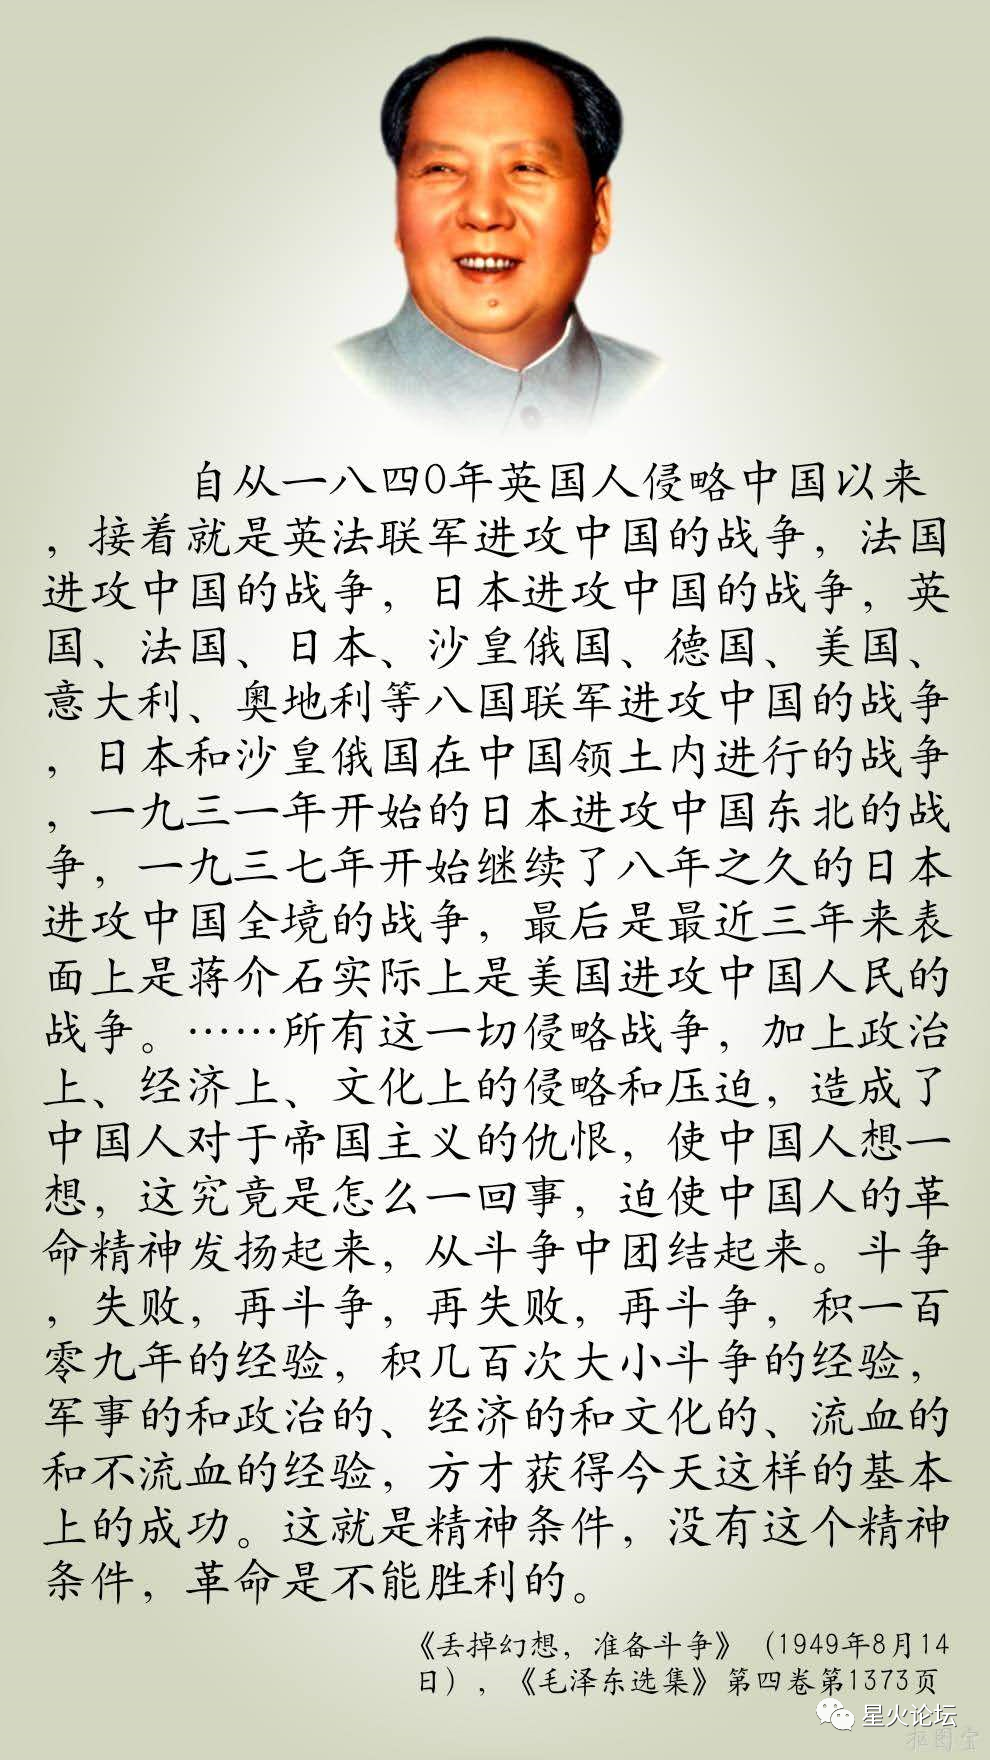 自从一八四0年英国人侵略中国以来
，接着就是英法联军进攻中国的战争，法国
进攻中国的战争，日本进攻中国的战争，英
国、法国、日本、沙皇俄国、德国、美国、
意大利、奥地利等八国联军进攻中国的战争
，日本和沙皇俄国在中国领土内进行的战争
，一九三一年开始的日本进攻中国东北的战
争，一九三七年开始继续了八年之久的日本
进攻中国全境的战争，最后是最近三年来表
面上是蒋介石实际上是美国进攻中国人民的
战争。……所有这一切侵略战争，加上政治
上、经济上、文化上的侵略和压迫，造成了
中国人对于帝国主义的仇恨，使中国人想一
想，这究竟是怎么一回事，迫使中国人的革
命精神发扬起来，从斗争中团结起来。斗争
，失败，再斗争，再失败，再斗争，积一百
零九年的经验，积几百次大小斗争的经验，
军事的和政治的、经济的和文化的、流血的
和不流血的经验，方才获得今天这样的基本
上的成功。这就是精神条件，没有这个精神
条件，革命是不能胜利的。
《丢掉幻想，准备斗争》（1949年8月14
日），《毛泽东选集》第四卷第1373页
星火论坛
抠图宝